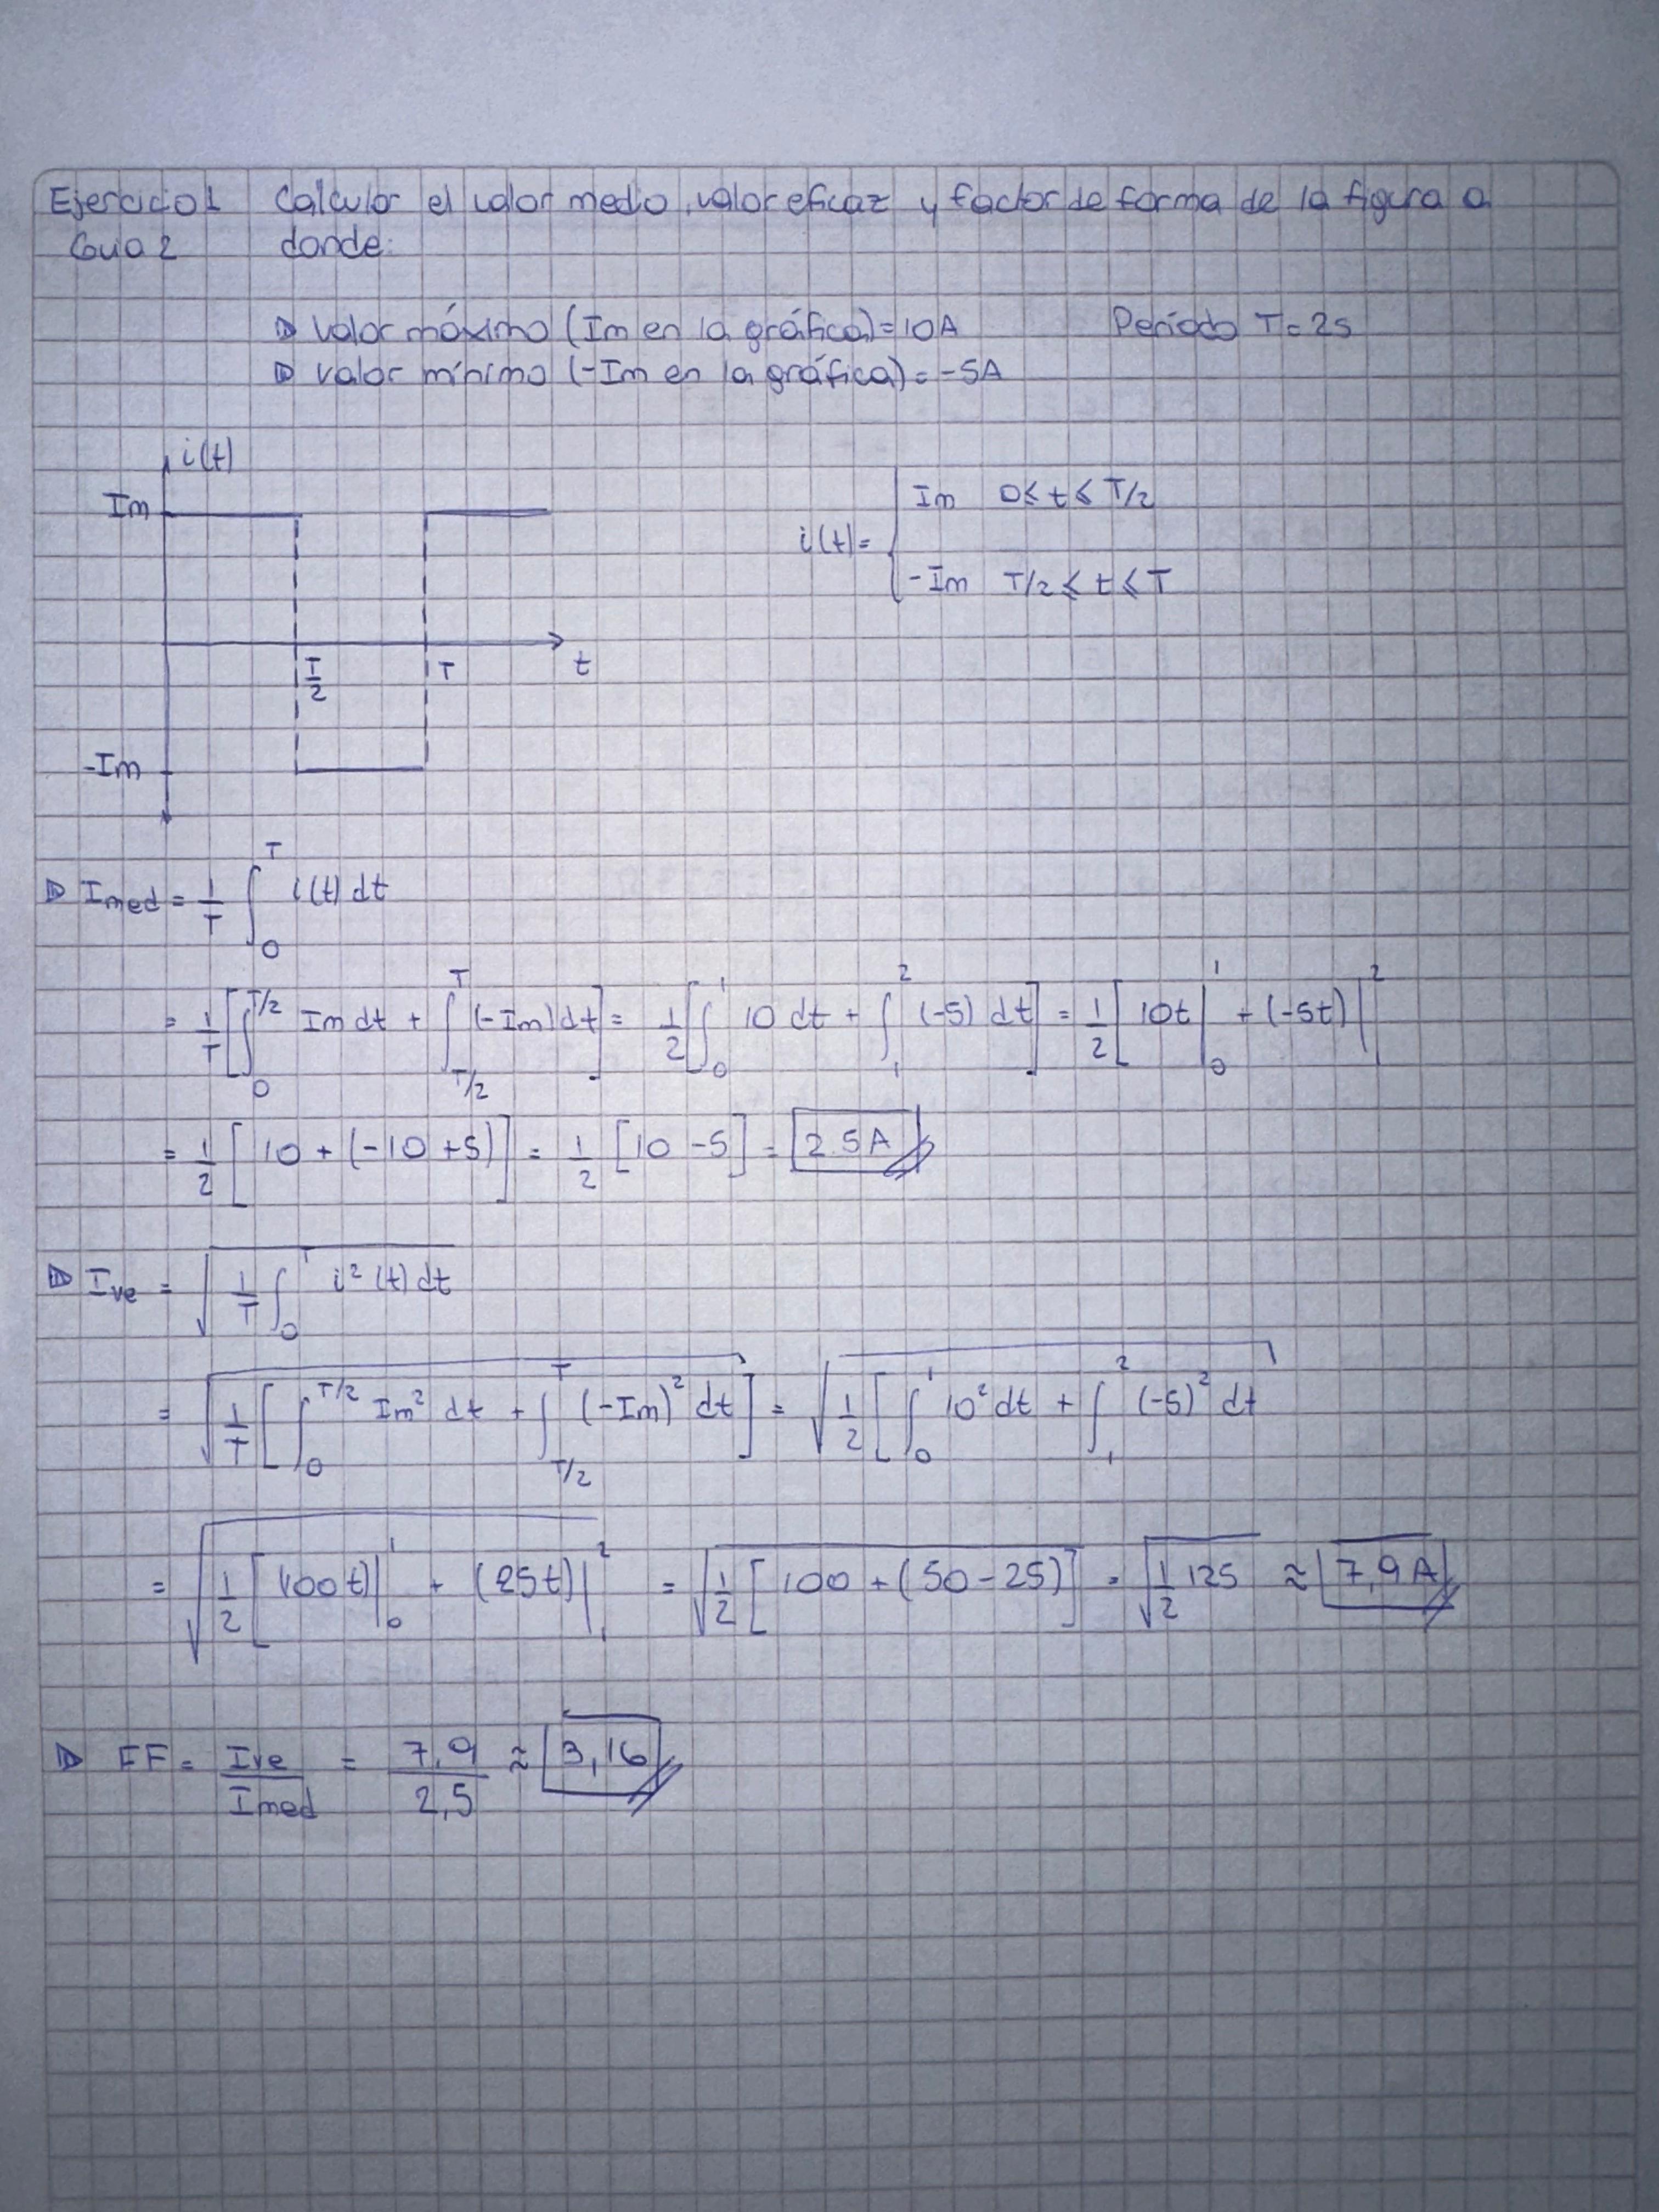 Ejercicio 1 Calcular el valor medio, valor eficaz y factor de forma de la figura a
Guia 2 donde:
▷ Valor máximo (Im en la gráfica) = 10A Período T = 2s
▷ Valor mínimo (-Im en la gráfica) = -5A
i(t)
Im
-Im
T/2 T t
i(t) = { Im 0 ≤ t ≤ T/2
-Im T/2 ≤ t ≤ T
▷ Imed = 1/T ∫₀ᵀ i(t) dt
= 1/T [∫₀^(T/2) Im dt + ∫_(T/2)^T (-Im) dt] = 1/2 [∫₀¹ 10 dt + ∫₁² (-5) dt] = 1/2 [10t |₀¹ + (-5t) |²
= 1/2 [10 + (-10 + 5)] = 1/2 [10 - 5] = 2.5A
▷ Ive = √(1/T ∫₀ᵀ i²(t) dt
= √(1/T [∫₀^(T/2) Im² dt + ∫_(T/2)^T (-Im)² dt]) = √(1/2 [∫₀¹ 10² dt + ∫₁² (-5)² dt
= √(1/2 [100t) |₀¹ + (25t) |₁² = √(1/2 [100 + (50 - 25)]) = √(1/2 125) ≈ 7,9A
▷ FF = Ive/Imed = 7,9/2,5 ≈ 3,16